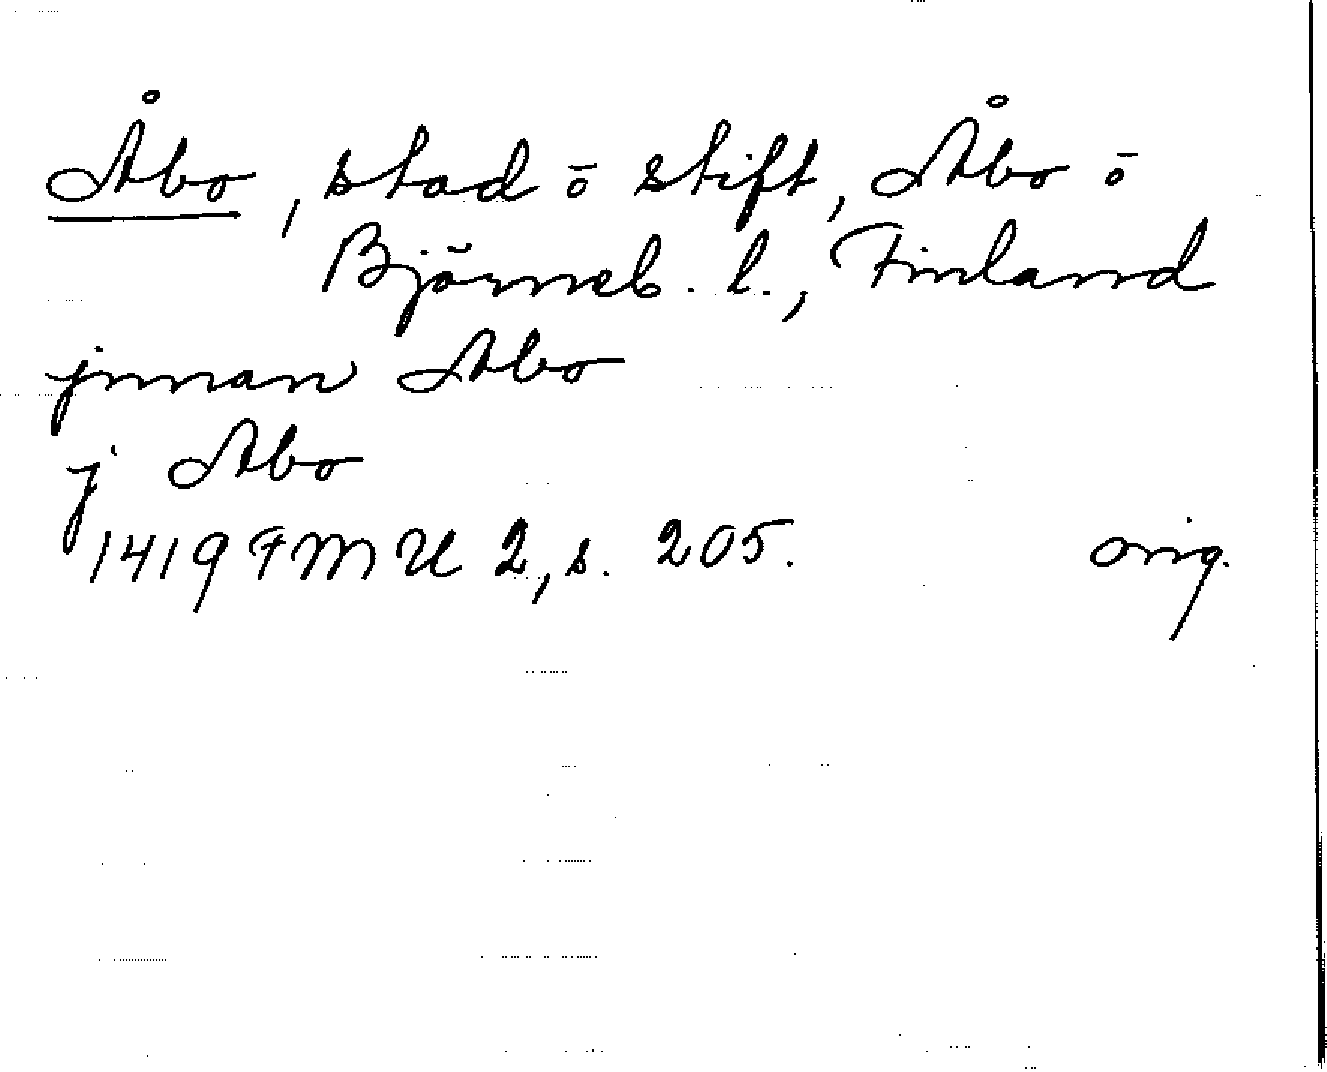 Åbo, stad ō stift, Åbo ō
Björneb. l., Finland
jnnan Abo
j Abo
1419 FMU 2, s. 205. orig.